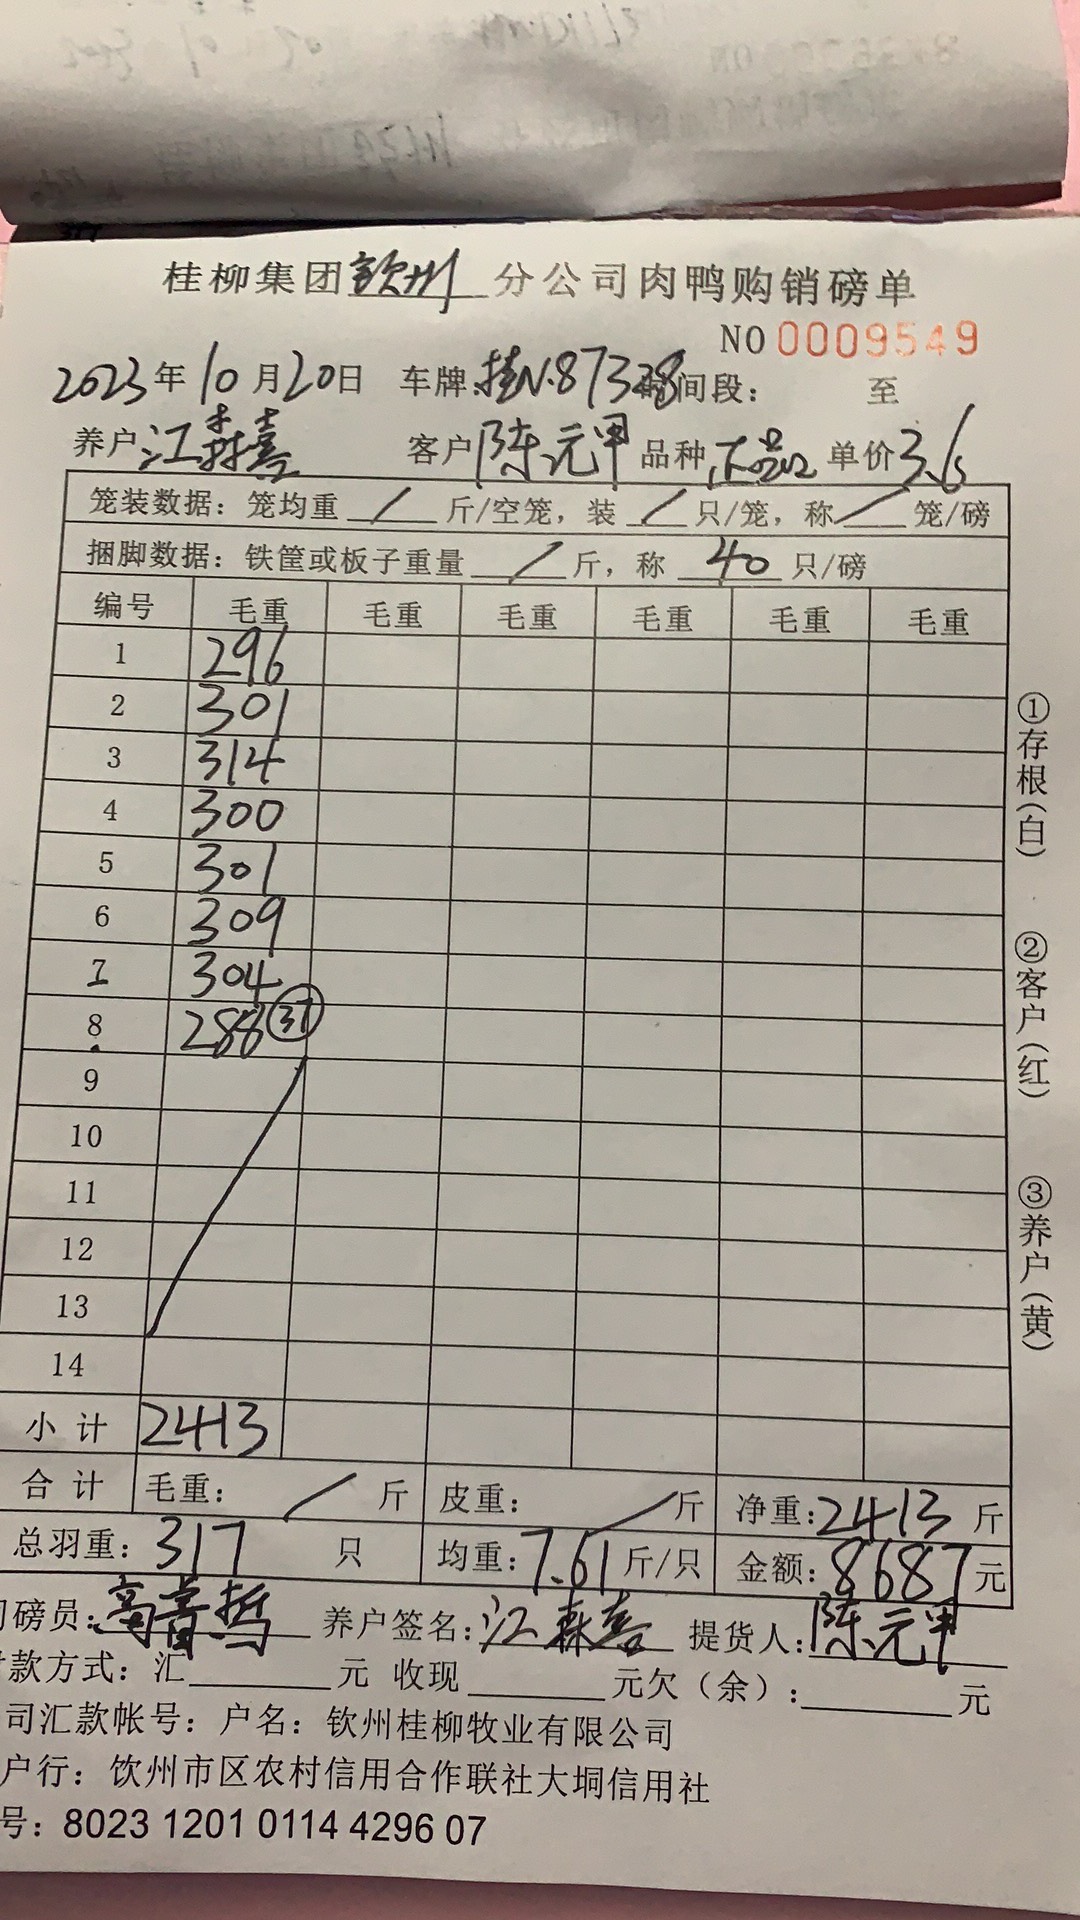 桂柳集团钦州分公司肉鸭购销磅单
NO 0009549
2023年10月20日 车牌:桂N.87328 时间段: 至
养户江森喜 客户陈元甲 品种 单价3.6
笼装数据: 笼均重 / 斤/空笼, 装 / 只/笼, 称 / 笼/磅
捆脚数据: 铁筐或板子重量 / 斤, 称 40 只/磅
编号 毛重 毛重 毛重 毛重 毛重 毛重
1 296
2 301
3 314
4 300
5 301
6 309
7 304
8 288 (37)
9
10
11
12
13
14
小计 2413
合计 毛重: / 斤 皮重: / 斤 净重:2413斤
总羽重: 317 只 均重:7.61斤/只 金额:8687元
司磅员: 养户签名:江森喜 提货人:陈元甲
付款方式: 汇 元 收现 元欠(余): 元
司汇款帐号: 户名: 钦州桂柳牧业有限公司
户行: 饮州市区农村信用合作联社大垌信用社
号: 8023 1201 0114 4296 07
①存根(白)
②客户(红)
③养户(黄)